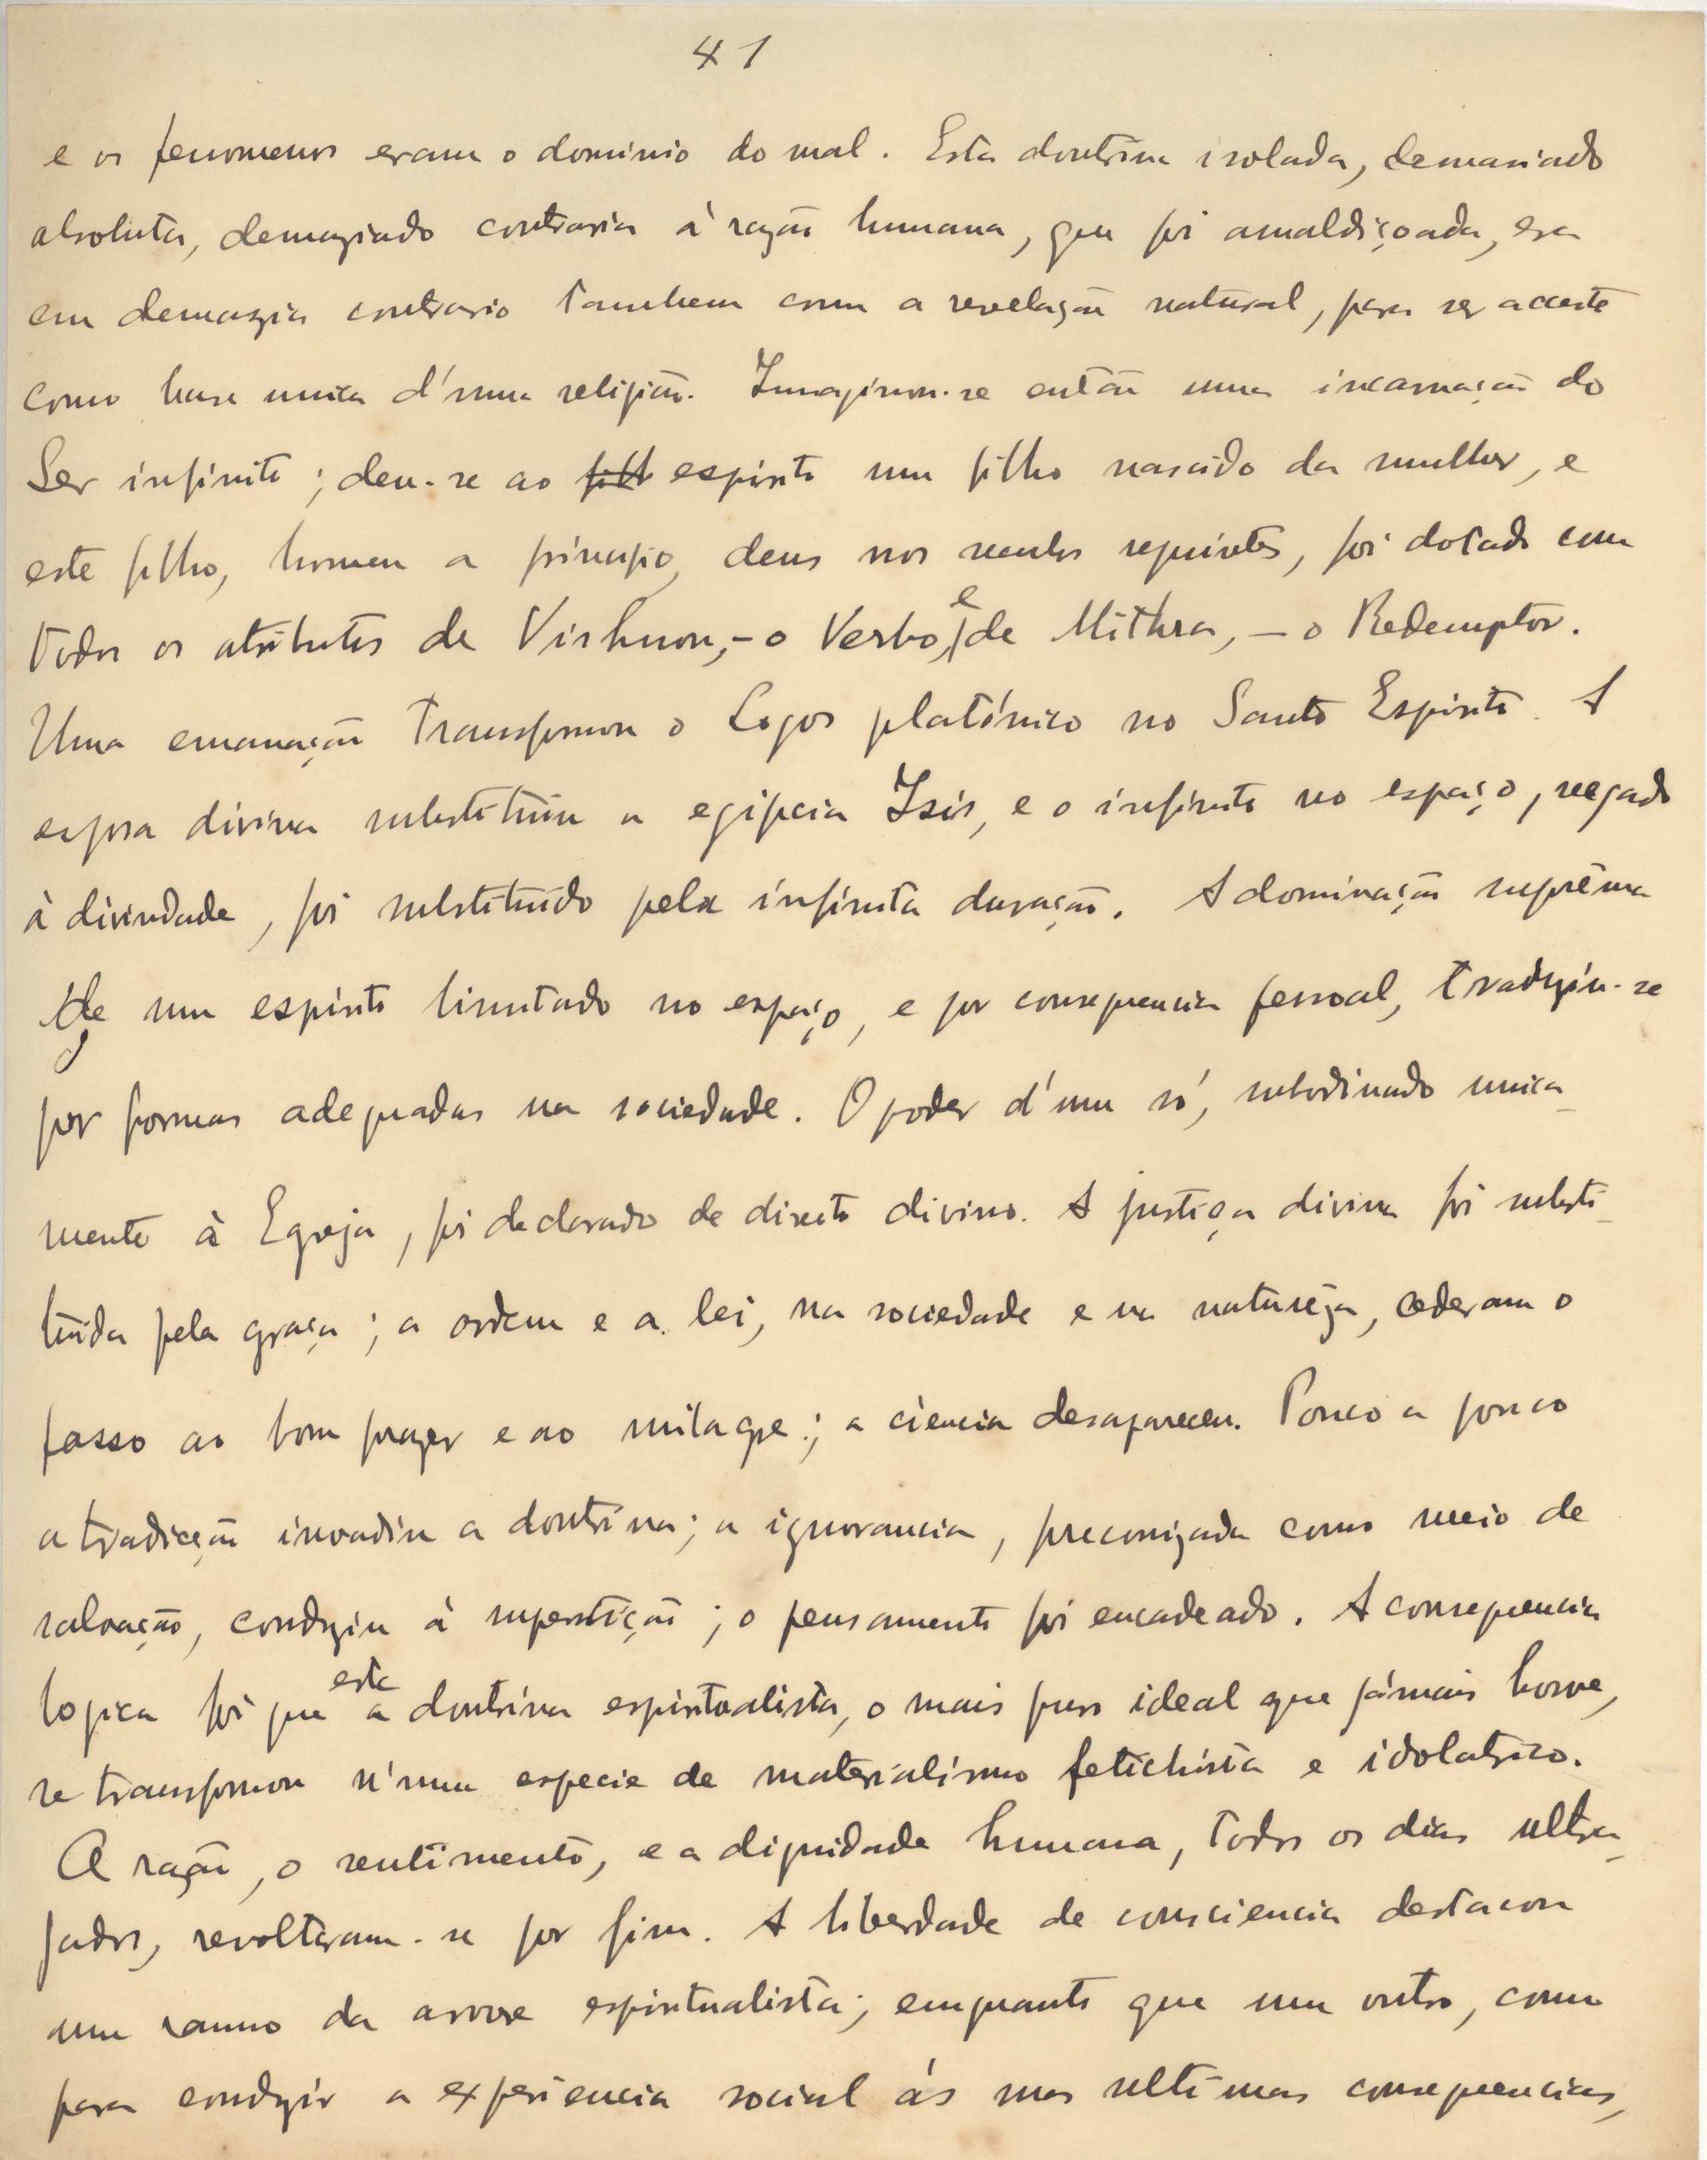 41
e os fenomenos eram o dominio do mal. Esta doutrina isolada, demasiado
absoluta, demaziado contraria á razão humana, que foi amaldiçoada, era
em demazia contrario tambem com a revelação natural, para ser acceite
como base unica d'uma religião. Imaginou-se então uma incarnação do
Ser infinito; deu-se ao filh espirito um filho nascido da mulher, e
este filho, homem a principio, deus nos seculos seguintes, foi dotado com
todos os atributos de Vishnou,- o Verbo, e de Mithra, - o Redemptor.
Uma emanação transformou o Logos platónico no Santo Espirito. A
esposa divina substituiu a egipcia Isis, e o infinito no espaço, negado
á divindade, foi substituido pela infinita duração. A dominação suprêma
de um espirito limitado no espaço, e por consequencia pessoal, traduziu-se
por formas adequadas na sociedade. O poder d'um só, subordinado unica-
mente à Egreja, foi declarado de direito divino. A justiça divina foi substi-
tuida pela graça; a ordem e a lei, na sociedade e na natureza, cederam o
passo ao bom prazer e ao milagre; a ciencia desapareceu. Pouco a pouco
a tradicção invadiu a doutrina; a ignorancia, preconizada como meio de
salvação, conduziu á superstição; o pensamento foi encadeado. A consequencia
logica foi que esta a doutrina espiritualista, o mais puro ideal que jámais houve,
se transformou n'uma especie de materialismo fetichista e idolatrico.
A razão, o sentimento, e a dignidade humana, todos os dias ultra-
jados, revoltaram-se por fim. A liberdade de consciencia destacou
um ramo da arvore espiritualista; emquanto que um outro, como
para conduzir a experiencia social ás suas ultimas consequencias,